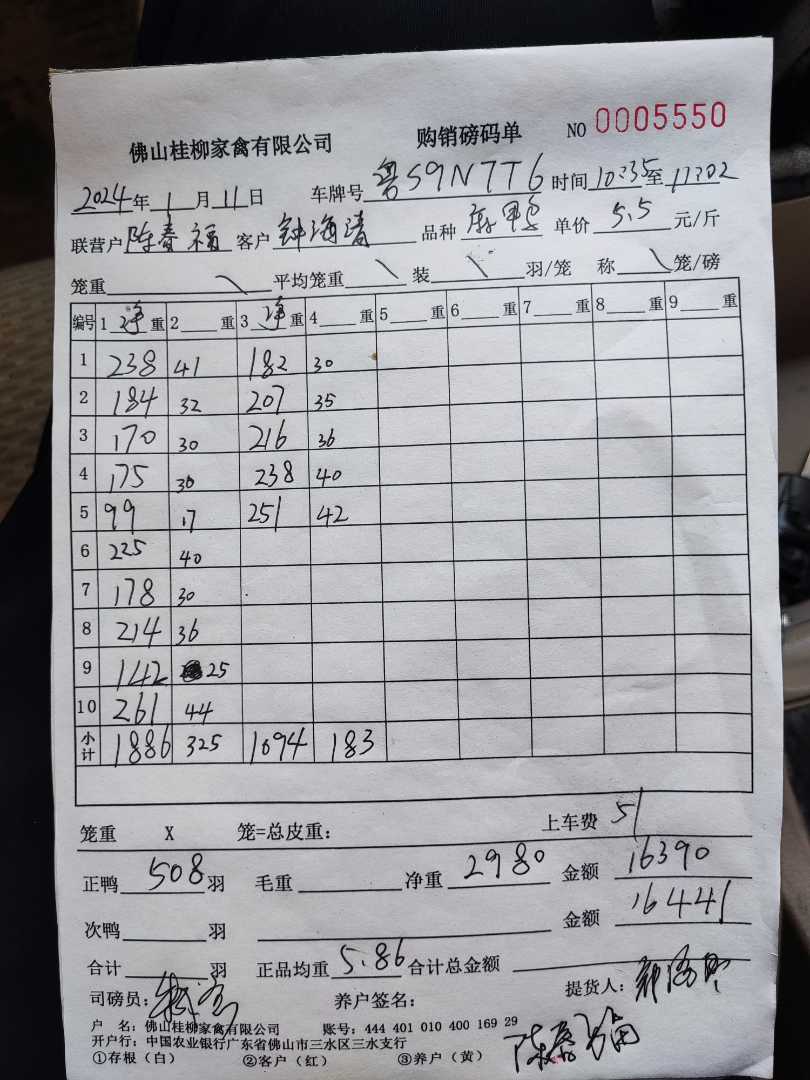 佛山桂柳家禽有限公司 购销磅码单 NO 0005550
2024年1月11日 车牌号 粤S9N7T6 时间10:35至11:02
联营户 陈春福 客户 钟海清 品种 麻鸭 单价 5.5 元/斤
笼重 \ 平均笼重 \ 装 \ 羽/笼 称 \ 笼/磅
编号 1 净 重 2 重 3 净 重 4 重 5 重 6 重 7 重 8 重 9 重
1 238 41 182 30
2 184 32 207 35
3 170 30 216 36
4 175 30 238 40
5 99 17 251 42
6 225 40
7 178 30
8 214 36
9 142 25
10 261 44
小计 1886 325 1094 183
笼重 X 笼=总皮重: 上车费 51
正鸭 508 羽 毛重 净重 2980 金额 16390
次鸭 羽 金额 16441
合计 羽 正品均重 5.86 合计总金额
司磅员: 养户签名: 提货人:
户 名: 佛山桂柳家禽有限公司 账号: 444 401 010 400 169 29
开户行: 中国农业银行广东省佛山市三水区三水支行
①存根（白） ②客户（红） ③养户（黄） 陈春福